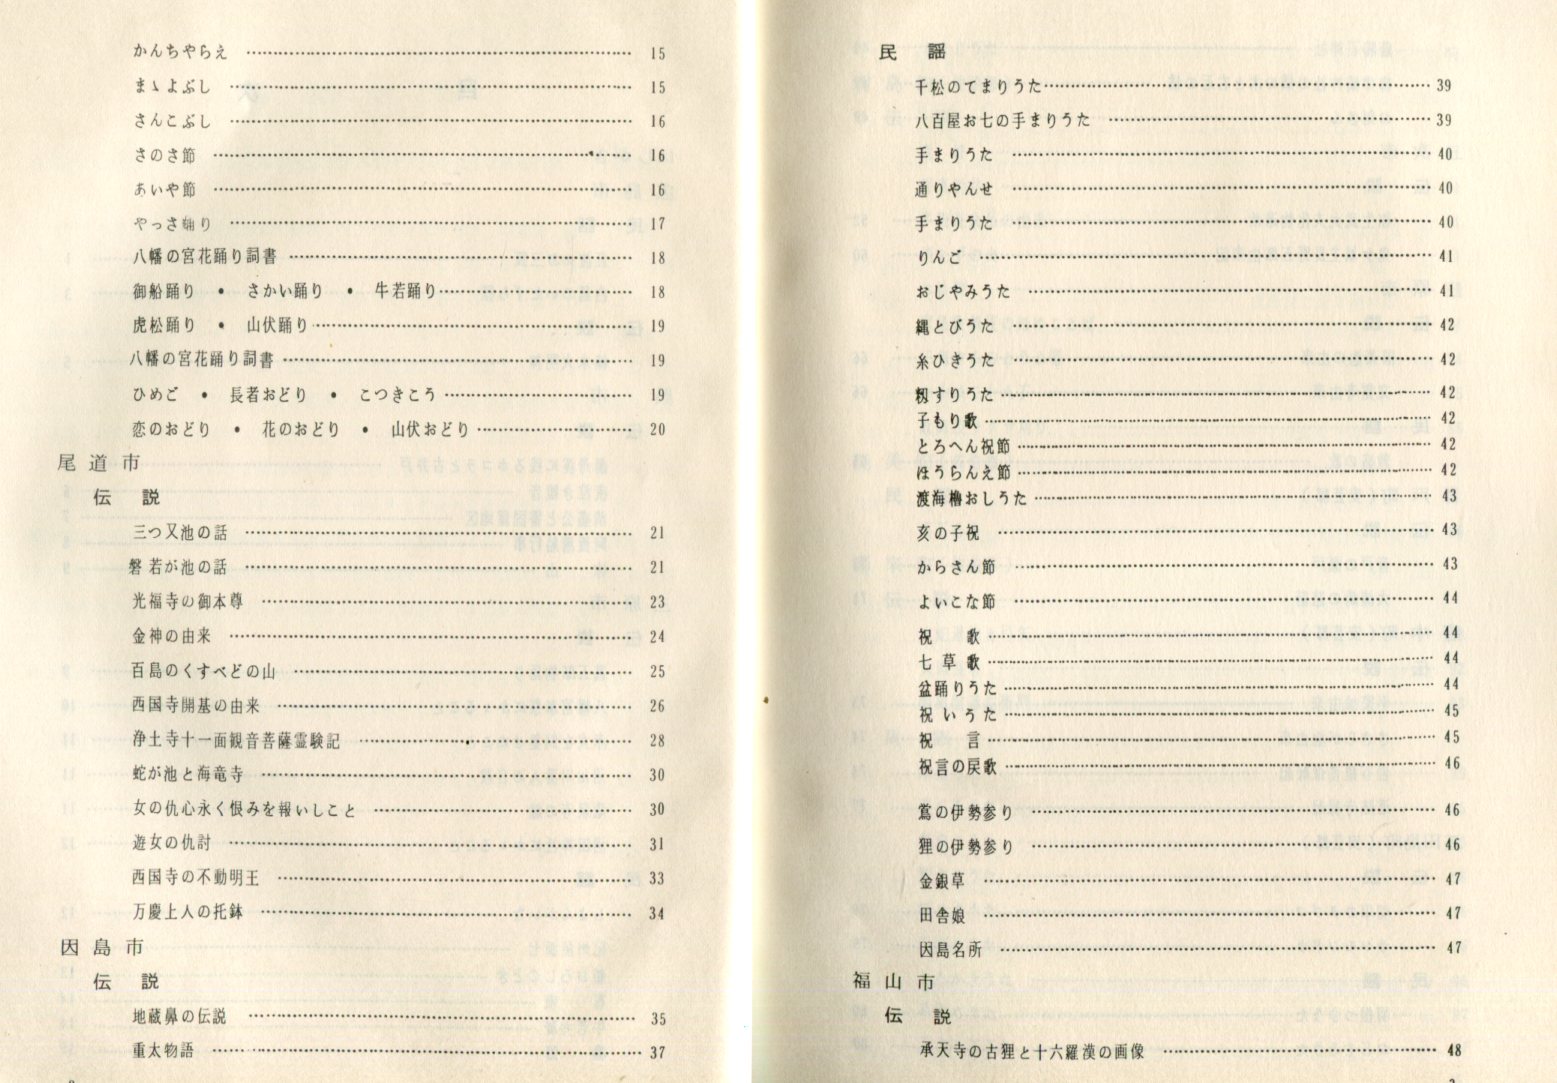 かんちやらえ ………… 15
まゝよぶし ………… 15
さんこぶし ………… 16
さのさ節 ………… 16
あいや節 ………… 16
やっさ踊り ………… 17
八幡の宮花踊り詞書 ………… 18
御船踊り ・ さかい踊り ・ 牛若踊り ………… 18
虎松踊り ・ 山伏踊り ………… 19
八幡の宮花踊り詞書 ………… 19
ひめご ・ 長者おどり ・ こつきこう ………… 19
恋のおどり ・ 花のおどり ・ 山伏おどり ………… 20
尾道市
伝説
三つ又池の話 ………… 21
磐若が池の話 ………… 21
光福寺の御本尊 ………… 23
金神の由来 ………… 24
百島のくすべどの山 ………… 25
西国寺開基の由来 ………… 26
浄土寺十一面観音菩薩霊験記 ………… 28
蛇が池と海竜寺 ………… 30
女の仇心永く恨みを報いしこと ………… 30
遊女の仇討 ………… 31
西国寺の不動明王 ………… 33
万慶上人の托鉢 ………… 34
因島市
伝説
地蔵鼻の伝説 ………… 35
重太物語 ………… 37
民謡
千松のてまりうた ………… 39
八百屋お七の手まりうた ………… 39
手まりうた ………… 40
通りやんせ ………… 40
手まりうた ………… 40
りんご ………… 41
おじやみうた ………… 41
縄とびうた ………… 42
糸ひきうた ………… 42
籾すりうた ………… 42
子もり歌 ………… 42
とろへん祝節 ………… 42
ほうらんえ節 ………… 42
渡海櫓おしうた ………… 43
亥の子祝 ………… 43
からさん節 ………… 43
よいこな節 ………… 44
祝歌 ………… 44
七草歌 ………… 44
盆踊りうた ………… 44
祝いうた ………… 45
祝言 ………… 45
祝言の戻歌 ………… 46
鴬の伊勢参り ………… 46
狸の伊勢参り ………… 46
金銀草 ………… 47
田舎娘 ………… 47
因島名所 ………… 47
福山市
伝説
承天寺の古狸と十六羅漢の画像 ………… 48